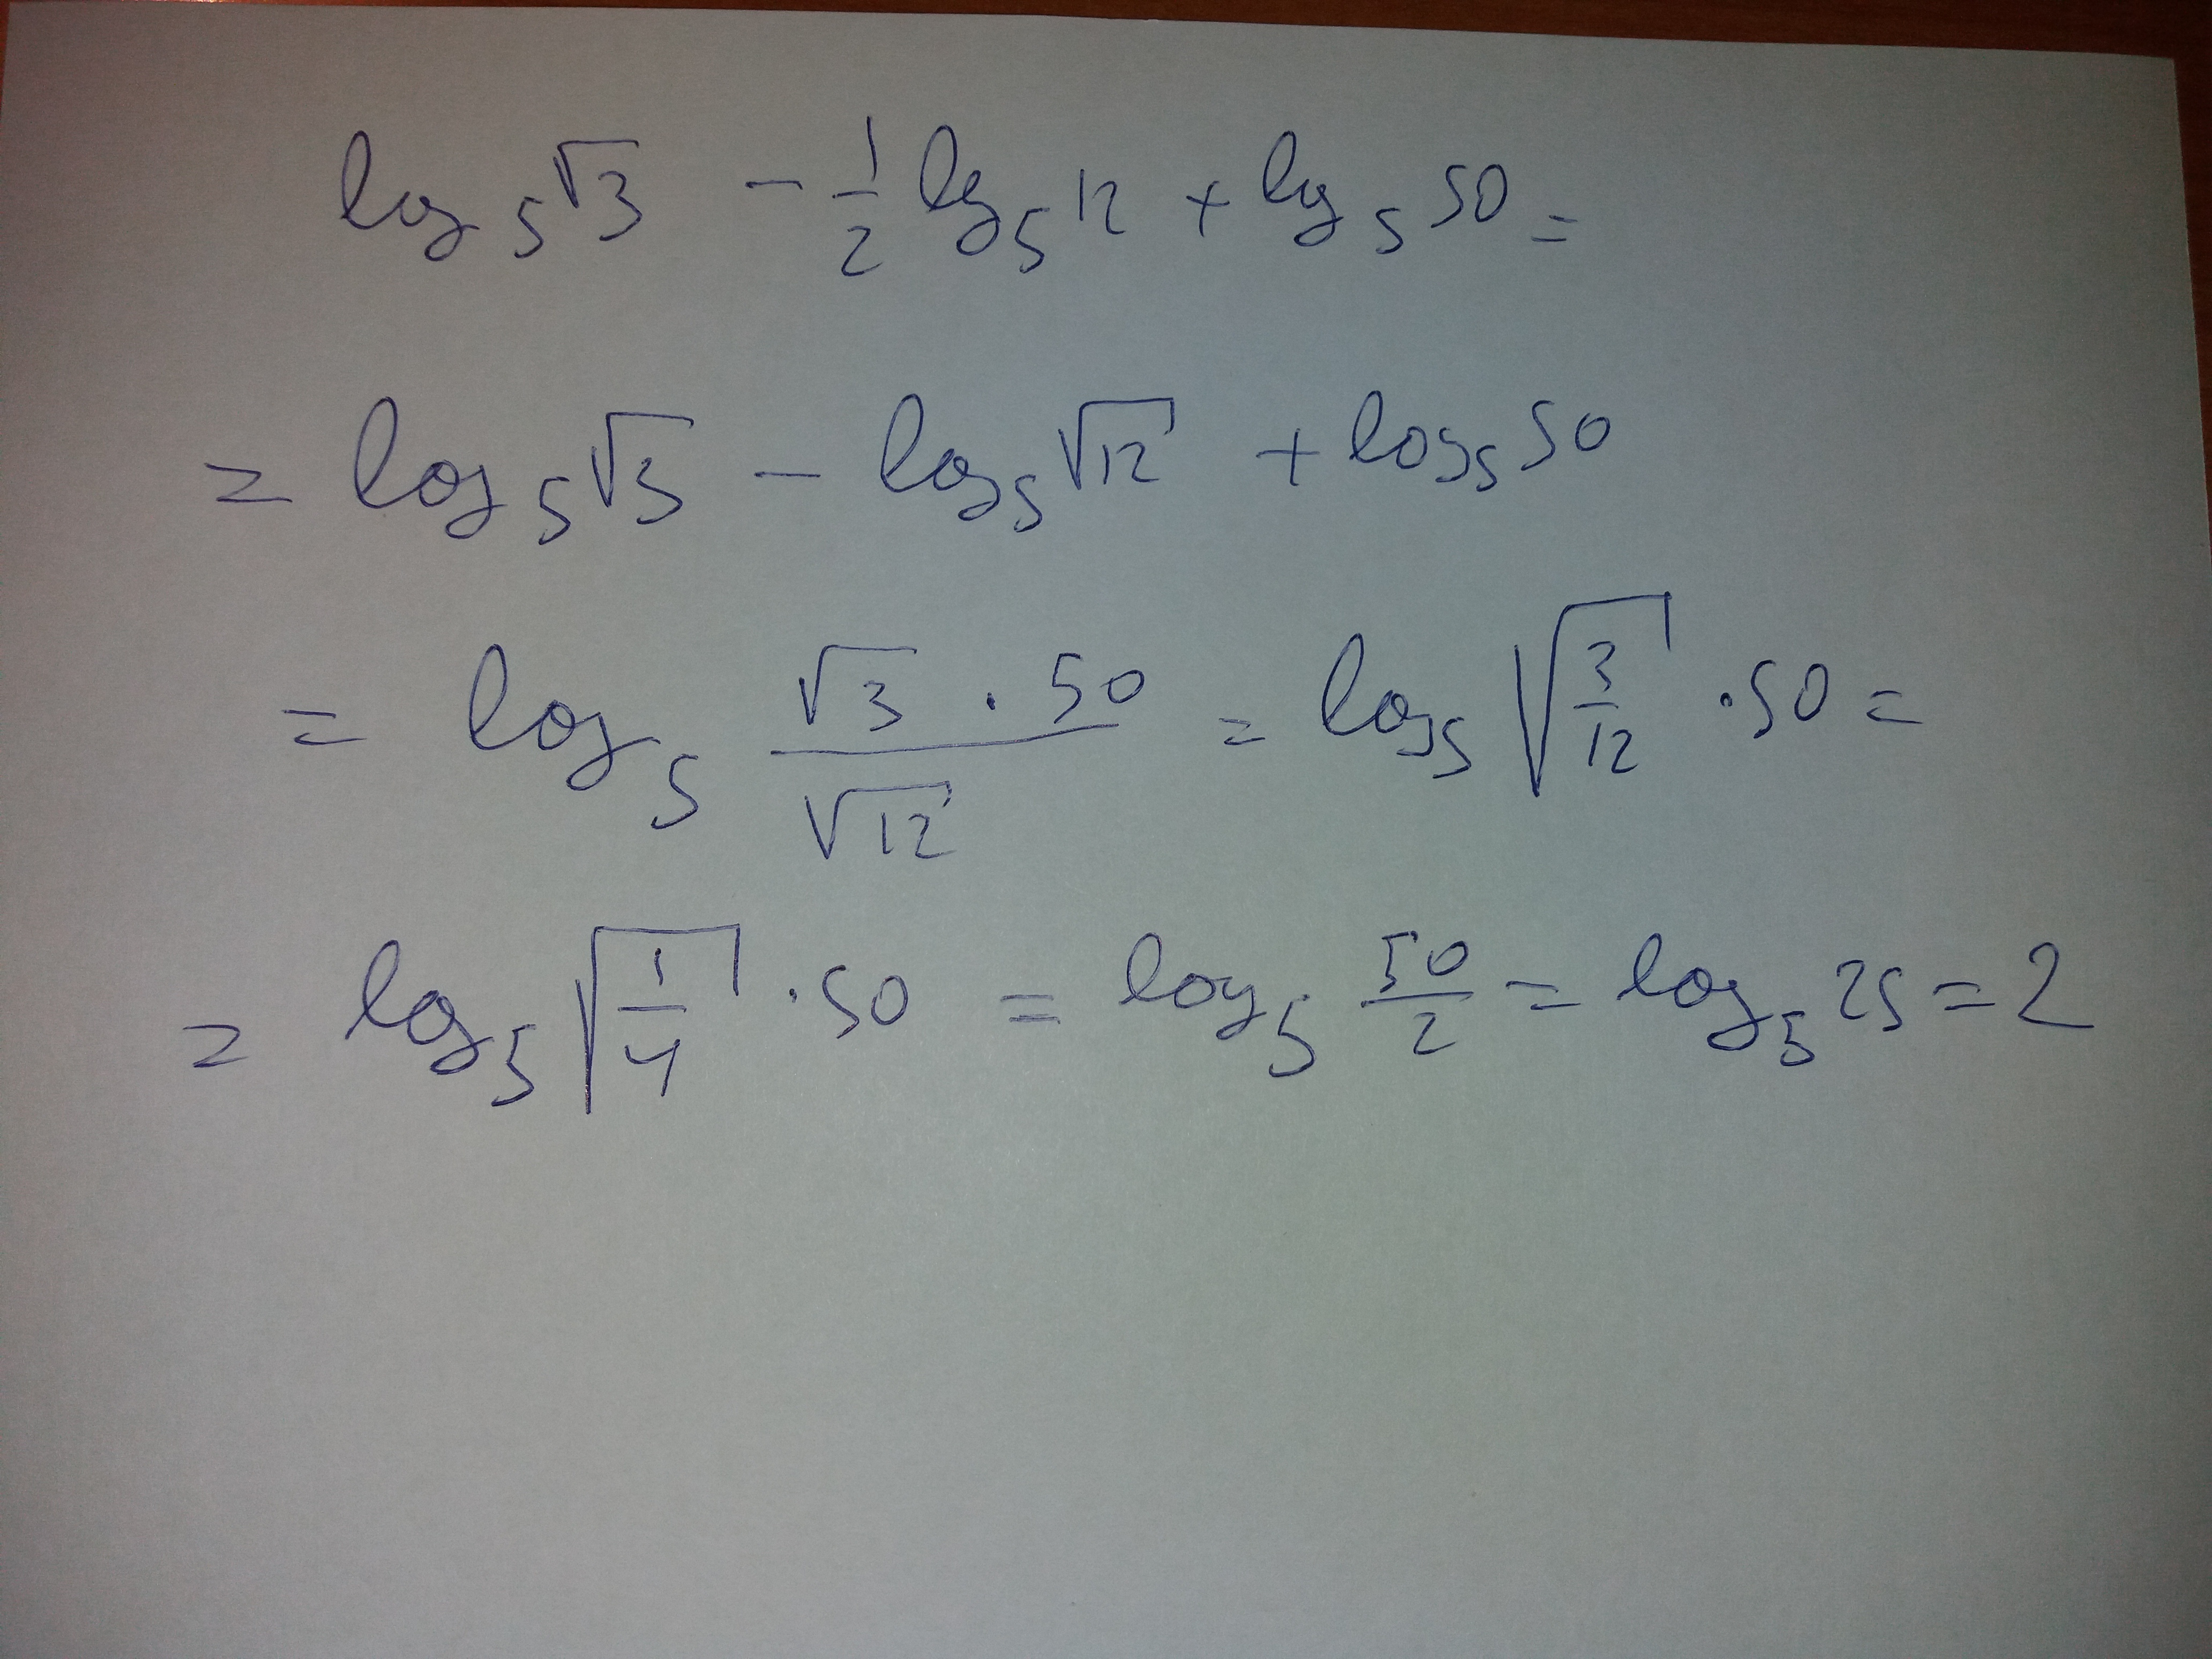 log₅√3 - 1/2 log₅12 + log₅50 =
= log₅√3 - log₅√12 + log₅50
= log₅ (√3 · 50)/√12 = log₅ √(3/12) · 50 =
= log₅ √(1/4) · 50 = log₅ 50/2 = log₅25 = 2